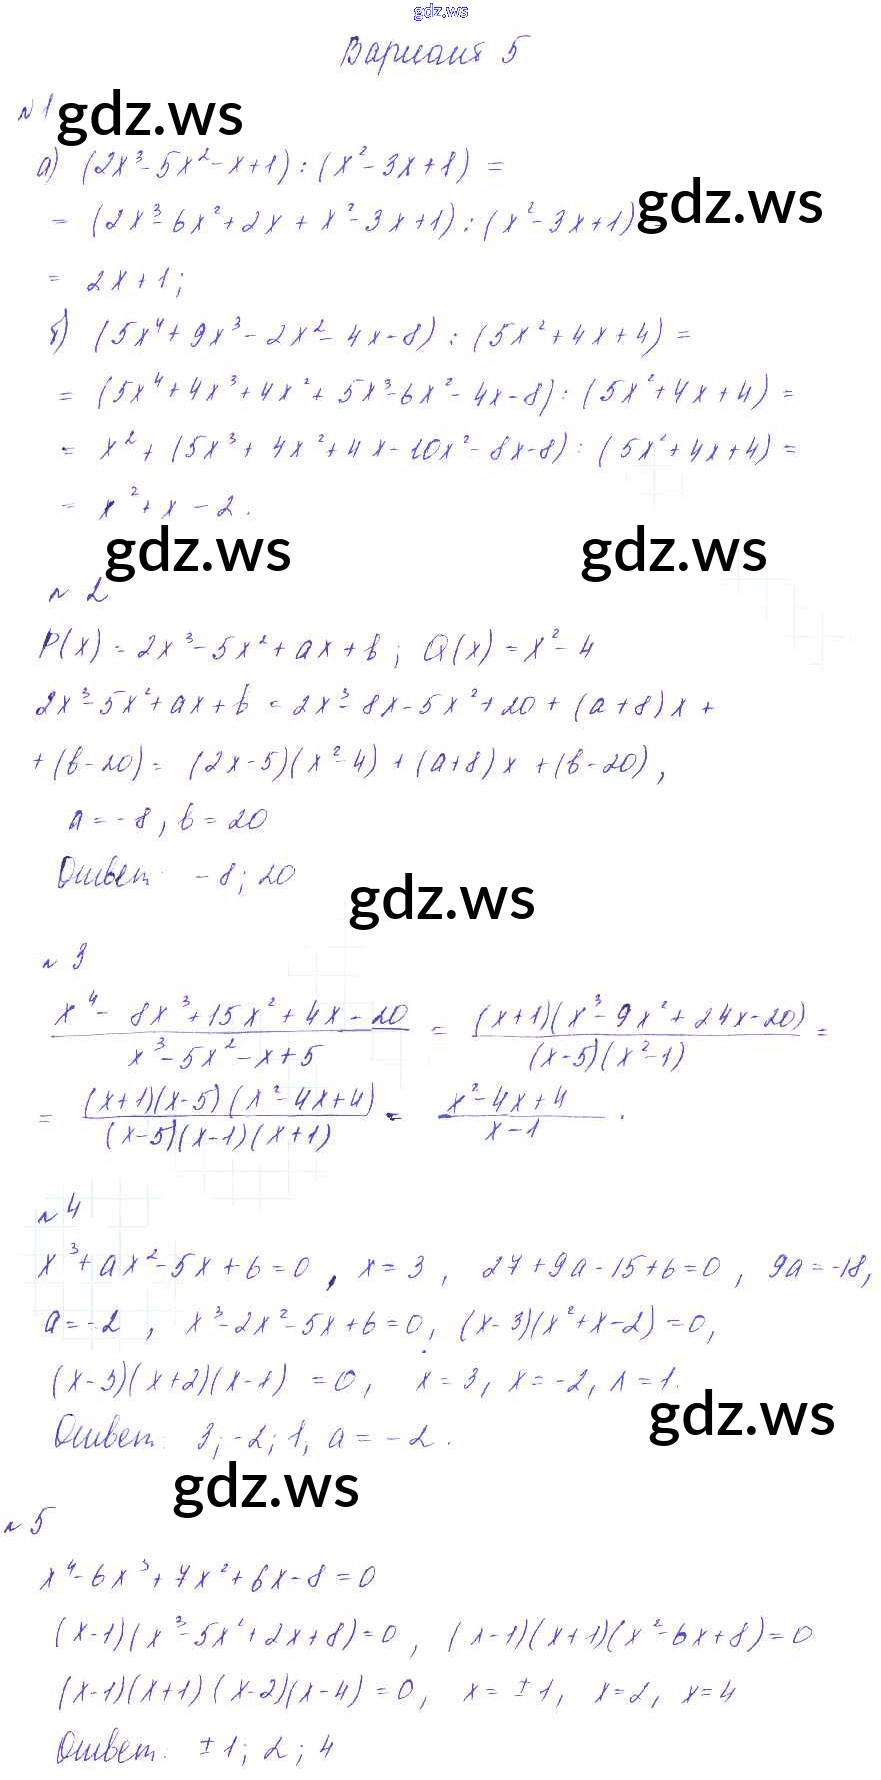 gdz.ws
Вариант 5
№ 1 gdz.ws
а) (2x³ - 5x² - x + 1) : (x² - 3x + 1) =
= (2x³ - 6x² + 2x + x² - 3x + 1) : (x² - 3x + 1) = gdz.ws
= 2x + 1;
б) (5x⁴ + 9x³ - 2x² - 4x - 8) : (5x² + 4x + 4) =
= (5x⁴ + 4x³ + 4x² + 5x³ - 6x² - 4x - 8) : (5x² + 4x + 4) =
= x² + (5x³ + 4x² + 4x - 10x² - 8x - 8) : (5x² + 4x + 4) =
= x² + x - 2.
gdz.ws gdz.ws
№ 2
P(x) = 2x³ - 5x² + ax + b; Q(x) = x² - 4
2x³ - 5x² + ax + b = 2x³ - 8x - 5x² + 20 + (a + 8)x +
+ (b - 20) = (2x - 5)(x² - 4) + (a + 8)x + (b - 20),
a = -8, b = 20
Ответ: -8; 20
gdz.ws
№ 3
(x⁴ - 8x³ + 15x² + 4x - 20)/(x³ - 5x² - x + 5) = ((x + 1)(x³ - 9x² + 24x - 20))/((x - 5)(x² - 1)) =
= ((x + 1)(x - 5)(x² - 4x + 4))/((x - 5)(x - 1)(x + 1)) = (x² - 4x + 4)/(x - 1).
№ 4
x³ + ax² - 5x + 6 = 0, x = 3, 27 + 9a - 15 + 6 = 0, 9a = -18,
a = -2, x³ - 2x² - 5x + 6 = 0, (x - 3)(x² + x - 2) = 0,
(x - 3)(x + 2)(x - 1) = 0, x = 3, x = -2, x = 1.
gdz.ws
Ответ: 3; -2; 1, a = -2.
gdz.ws
№ 5
x⁴ - 6x³ + 7x² + 6x - 8 = 0
(x - 1)(x³ - 5x² + 2x + 8) = 0, (x - 1)(x + 1)(x² - 6x + 8) = 0
(x - 1)(x + 1)(x - 2)(x - 4) = 0, x = ±1, x = 2, x = 4
Ответ: ±1; 2; 4